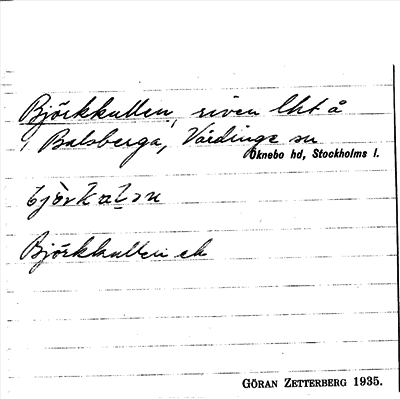 Björkkullen, riven lht å
Balsberga, Vårdinge sn
Öknebo hd, Stockholms l.
Björkkullen ek
GÖRAN ZETTERBERG 1935.